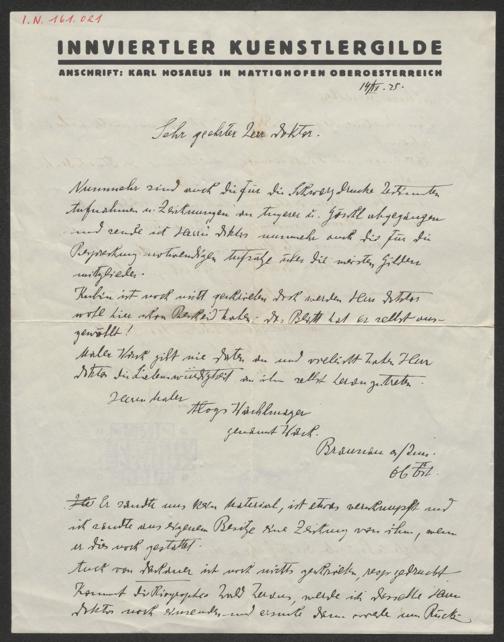 I.N. 161.021
INNVIERTLER KUENSTLERGILDE
ANSCHRIFT: KARL HOSAEUS IN MATTIGHOFEN OBEROESTERREICH
Sehr geehrter Herr Doktor.
Nunmehr sind auch die für die Schwarzdrucke bestimmten
Aufnahmen u. Zeichnungen an u. abgegangen
und sende ich Herrn Doktor nunmehr auch die für die
Besprechung notwendigen Aufsätze über die meisten Gilden
mitglieder.
Kubin ist noch nicht geschrieben doch werden Herr Doktor
wohl hier schon Bescheid haben; das Blatt hat er selbst aus-
gewählt!
Maler Wach gibt nie Daten an und vielleicht haben Herr
Doktor die Liebenswürdigkeit an ihn selbst heranzutreten.
Herrn Maler
Aloys Wachlmayer
genannt Wach.
Braunau a/Inn.
Er sandte uns kein Material, ist etwas verschnupft und
ich sandte aus eigenem Besitze eine Zeichnung von ihm, wenn
er dies noch gestattet.
Auch von ist noch nichts geschrieben, resp. gedruckt
kommt die Biographie bald heraus, werde ich dieselbe Herrn
Doktor noch einsenden und ersuche dann um Rück-